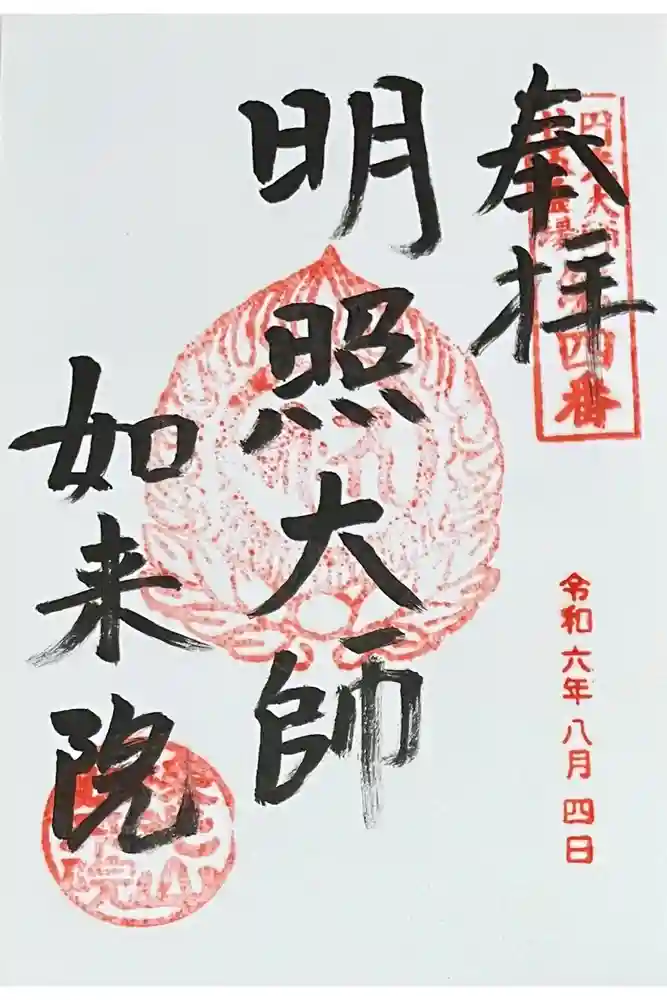 奉拝
四番
明照大師
如来院
令和六年八月四日